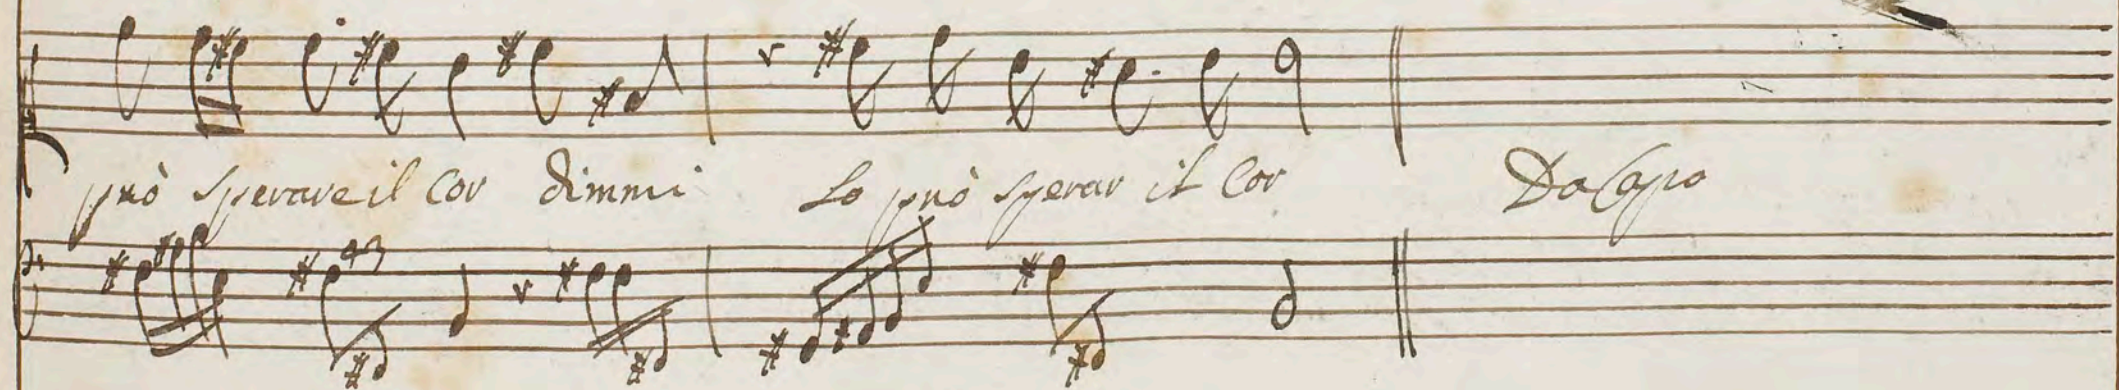 può sperare il Cor dimmi Lo può sperar il Cor Da Capo
43